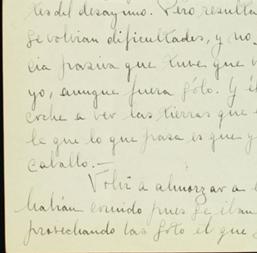 tes del desayuno. Pero resulta
se volvían dificultades, y no
cia pasiva que tuve que
yo, aunque fuera sólo. Y
coche a ver las tierras que
le que lo que pasa es que y
caballo.—
Volví a almorzar a
habían comido pues se iban
provechando las foto el que